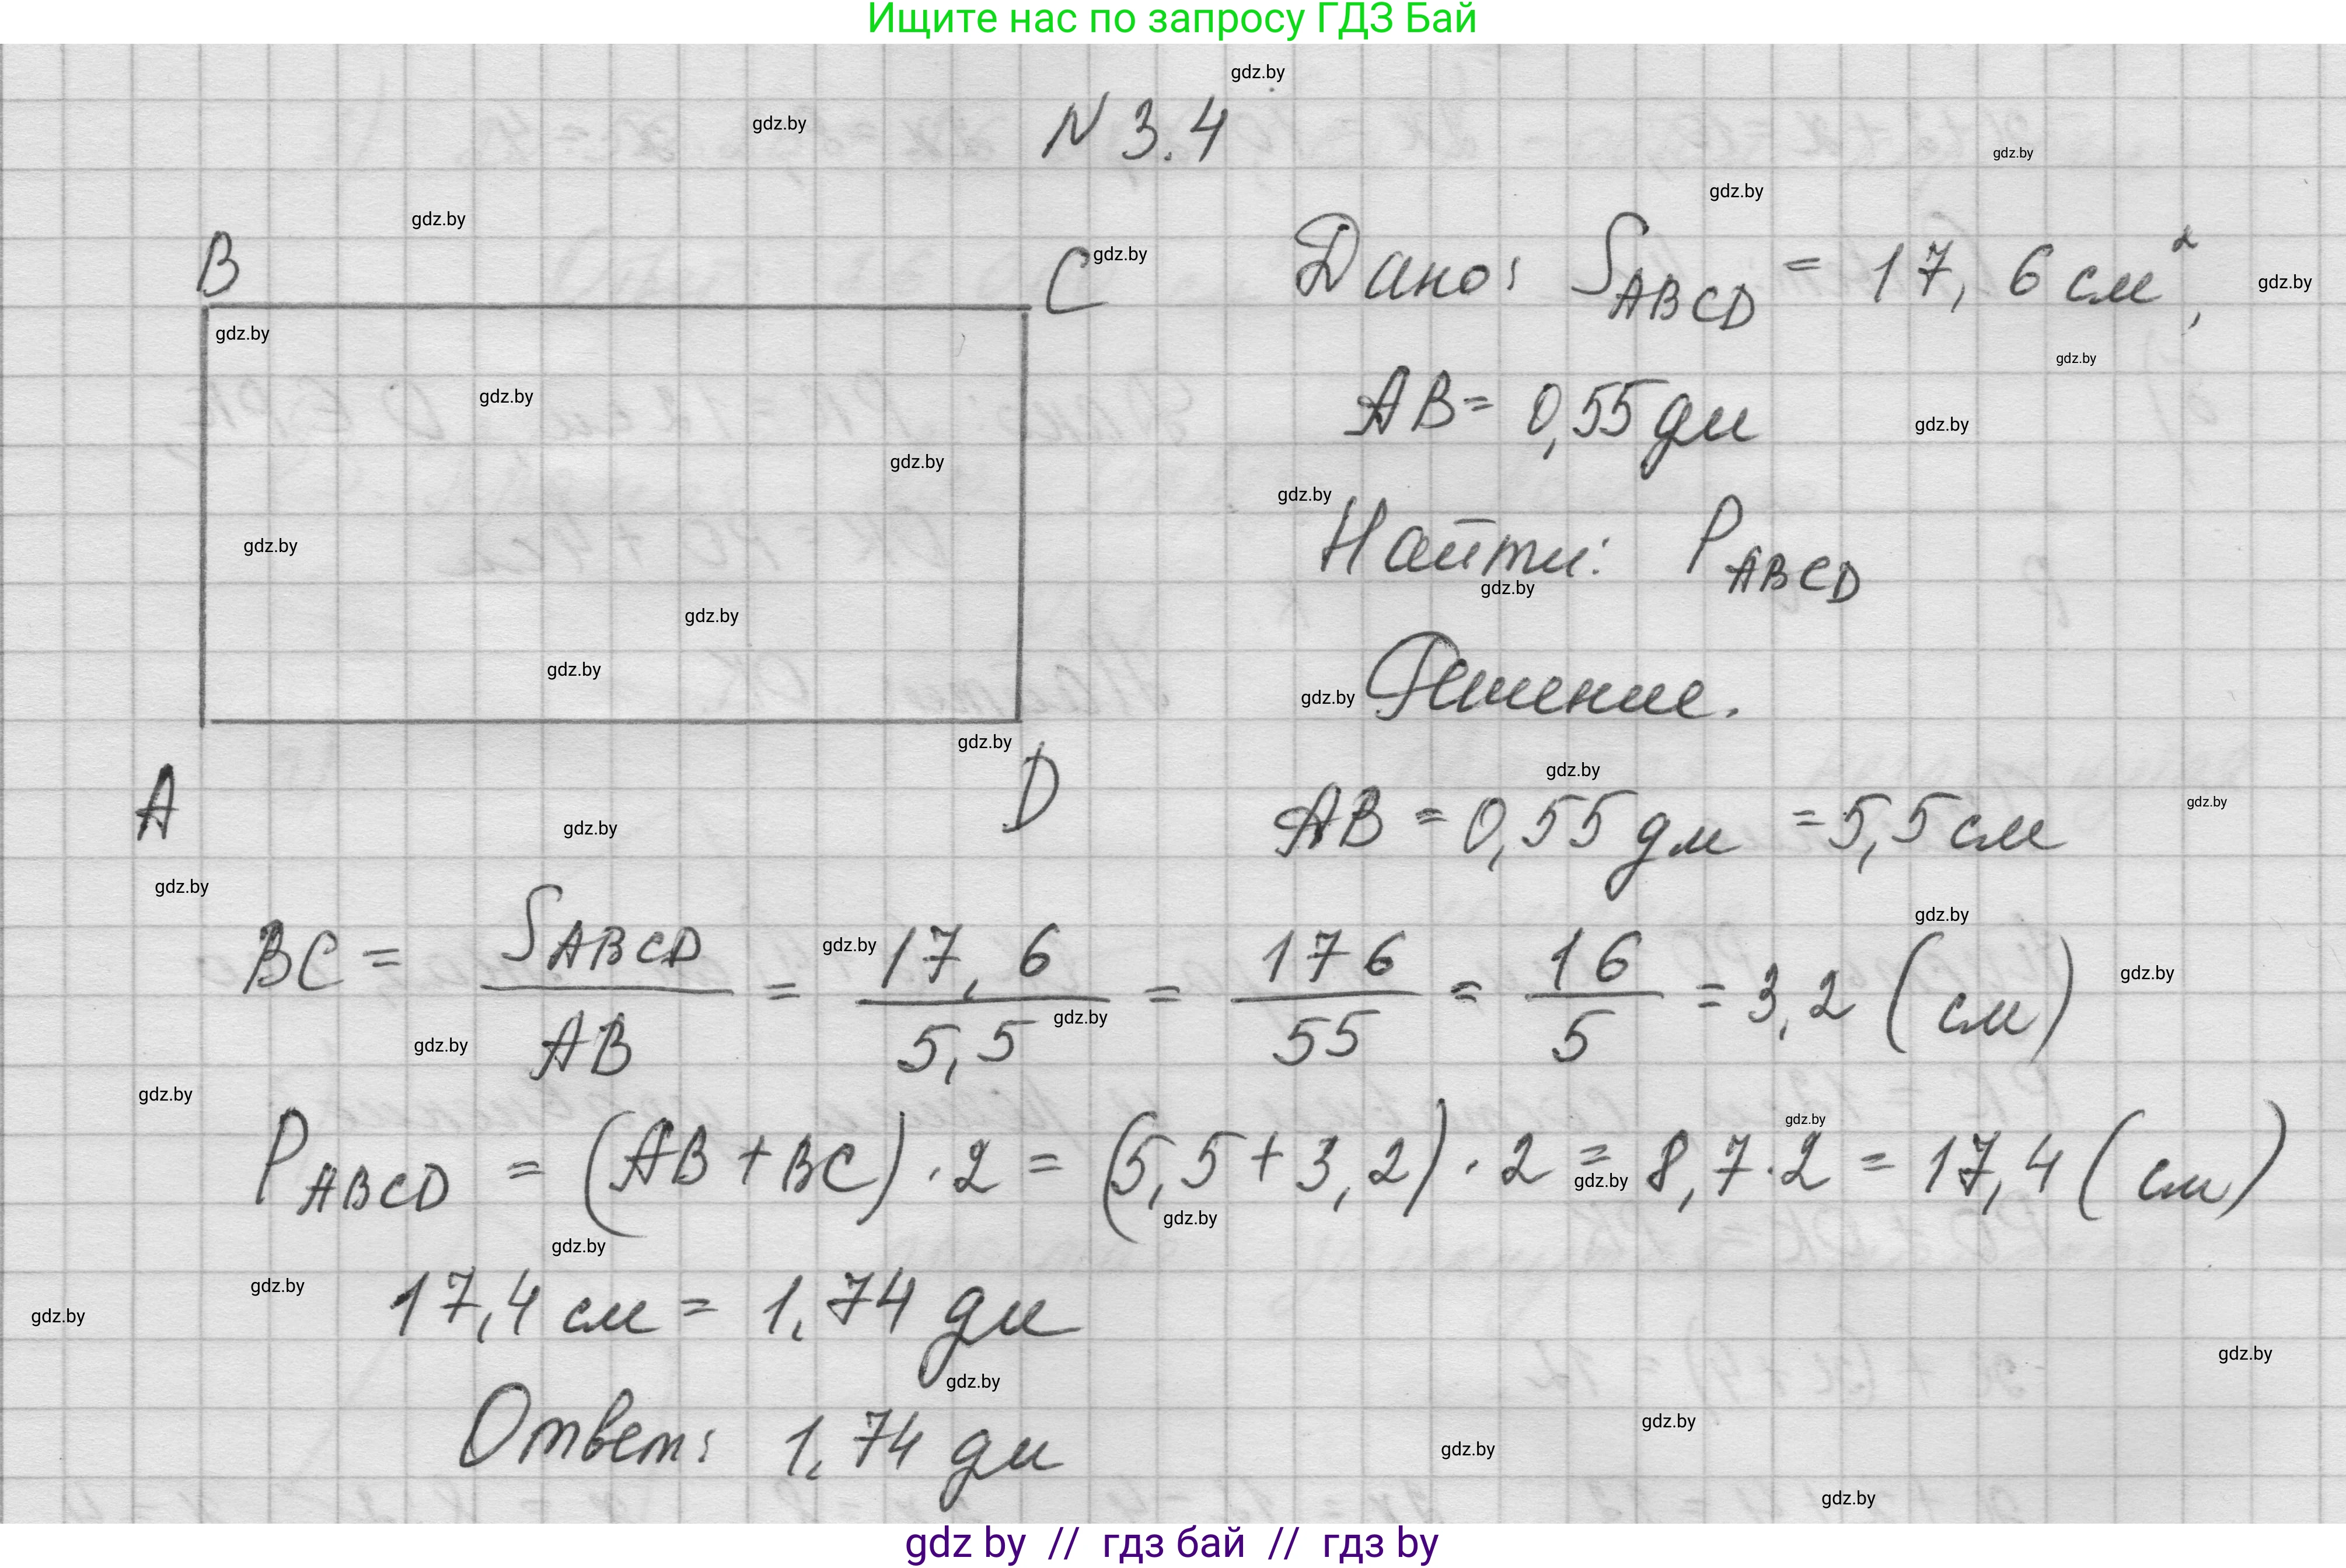 Ищите нас по запросу ГДЗ Бай
N 3.4
B
C
A
D
Дано: S_ABCD = 17,6 см²,
AB = 0,55 дм
Найти: P_ABCD
Решение.
AB = 0,55 дм = 5,5 см
BC = S_ABCD / AB = 17,6 / 5,5 = 176 / 55 = 16 / 5 = 3,2 (см)
P_ABCD = (AB + BC) · 2 = (5,5 + 3,2) · 2 = 8,7 · 2 = 17,4 (см)
17,4 см = 1,74 дм
Ответ: 1,74 дм
gdz by // гдз бай // гдз by
gdz.by